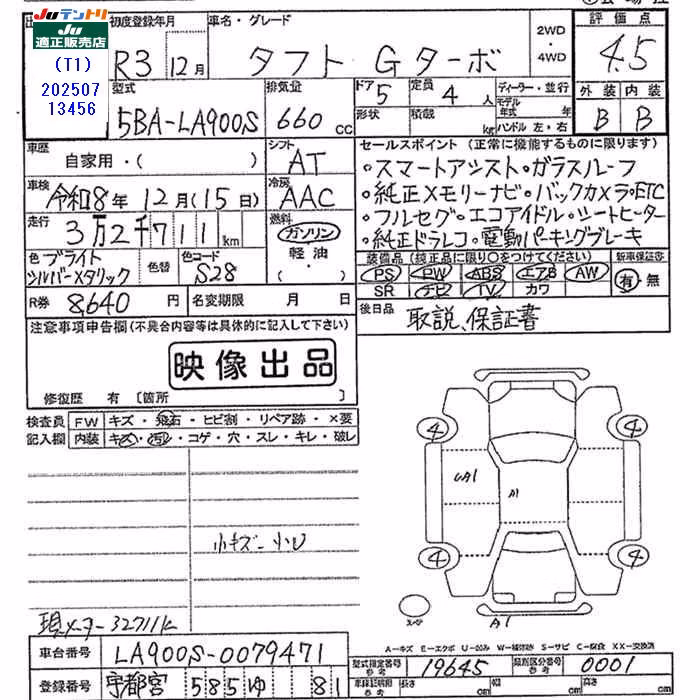 Juテントリ
Ju適正販売店
(T1)
202507
13456
初度登録年月
R3 12月
車名・グレード
タフト Gターボ
2WD
・
4WD
評価点
4.5
型式
5BA-LA900S
排気量
660 cc
ドア
5
定員
4 人
形状
積載
kg
ディーラー・並行
モデル年式 年
ハンドル 左・右
外装 内装
B B
車歴
自家用・( )
シフト
AT
セールスポイント (正常に機能するものに限ります)
・スマートアシスト・ガラスルーフ
・純正メモリーナビ・バックカメラ・ETC
・フルセグ・エコアイドル・シートヒーター
・純正ドラレコ・電動パーキングブレーキ
車検
令和8年 12月(15日)
冷房
AAC
走行
3万2千711km
燃料
ガソリン
軽油
・
( )
色 ブライトシルバーメタリック
色替
色コード
S28
装備品 (純正品に限り○をつけてください)
PS PW ABS エアB AW
SR ナビ TV カワ
新車保証書
有・無
R券 8,640 円
名変期限 月 日
後日品
取説、保証書
注意事項申告欄 (不具合内容等は具体的に記入して下さい)
映像出品
修復歴 有 [箇所 ]
検査員記入欄
FW キズ・飛石・ヒビ割・リペア跡・×要
内装 キズ・汚レ・コゲ・穴・スレ・キレ・破レ
小キズ 小U
4 4
A1
4 4
A1
現メーター32711k
スペア
A-キズ E-エクボ U-凹み W-補修跡 S-サビ C-腐食 XX-交換済
車台番号 LA900S-0079471
型式指定番号 参考 19645
類別区分番号 参考 0001
登録番号 宇都宮 585 ゆ 81
車検証明記 参考
長さ cm
幅 cm
高さ cm